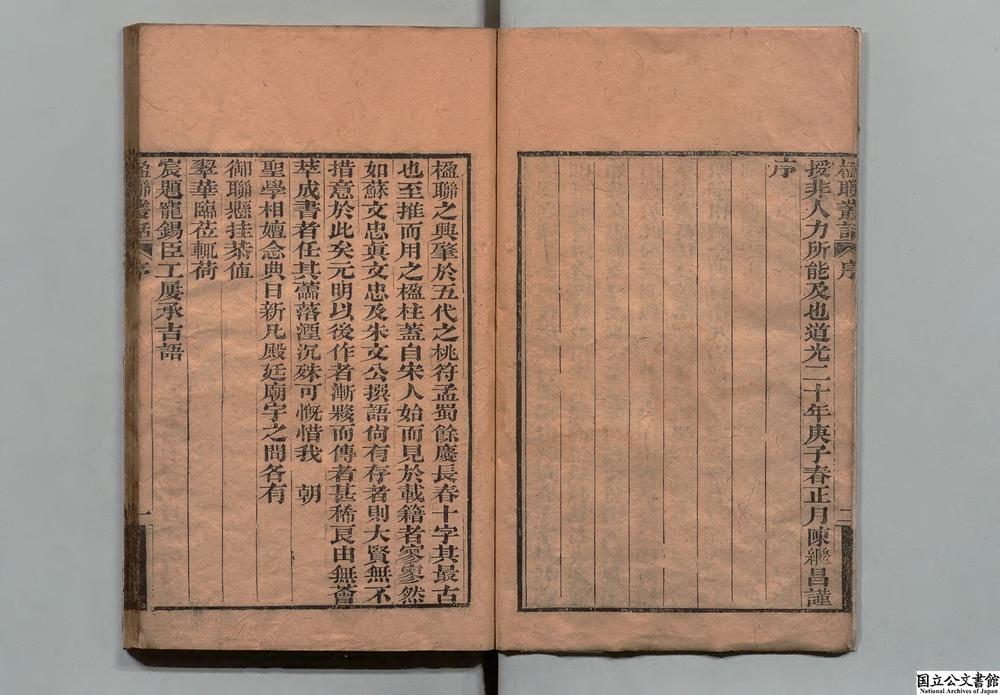 楹聯叢話 序 二
授非人力所能及也道光二十年庚子春正月陳繼昌謹
序
楹聯之興肇於五代之桃符孟蜀餘慶長春十字其最古
也至推而用之楹柱蓋自宋人始而見於載籍者寥寥然
如蘇文忠眞文忠及朱文公撰語尙有存者則大賢無不
措意於此矣元明以後作者漸夥而傳者甚稀良由無薈
萃成書者任其蕭落湮沉殊可慨惜我 朝
聖學相嬗念典日新凡殿廷廟宇之間各有
御聯懸挂恭值
翠華臨莅輒荷
宸題寵錫臣工屢承吉語
楹聯叢話 序 一
国立公文書館
National Archives of Japan